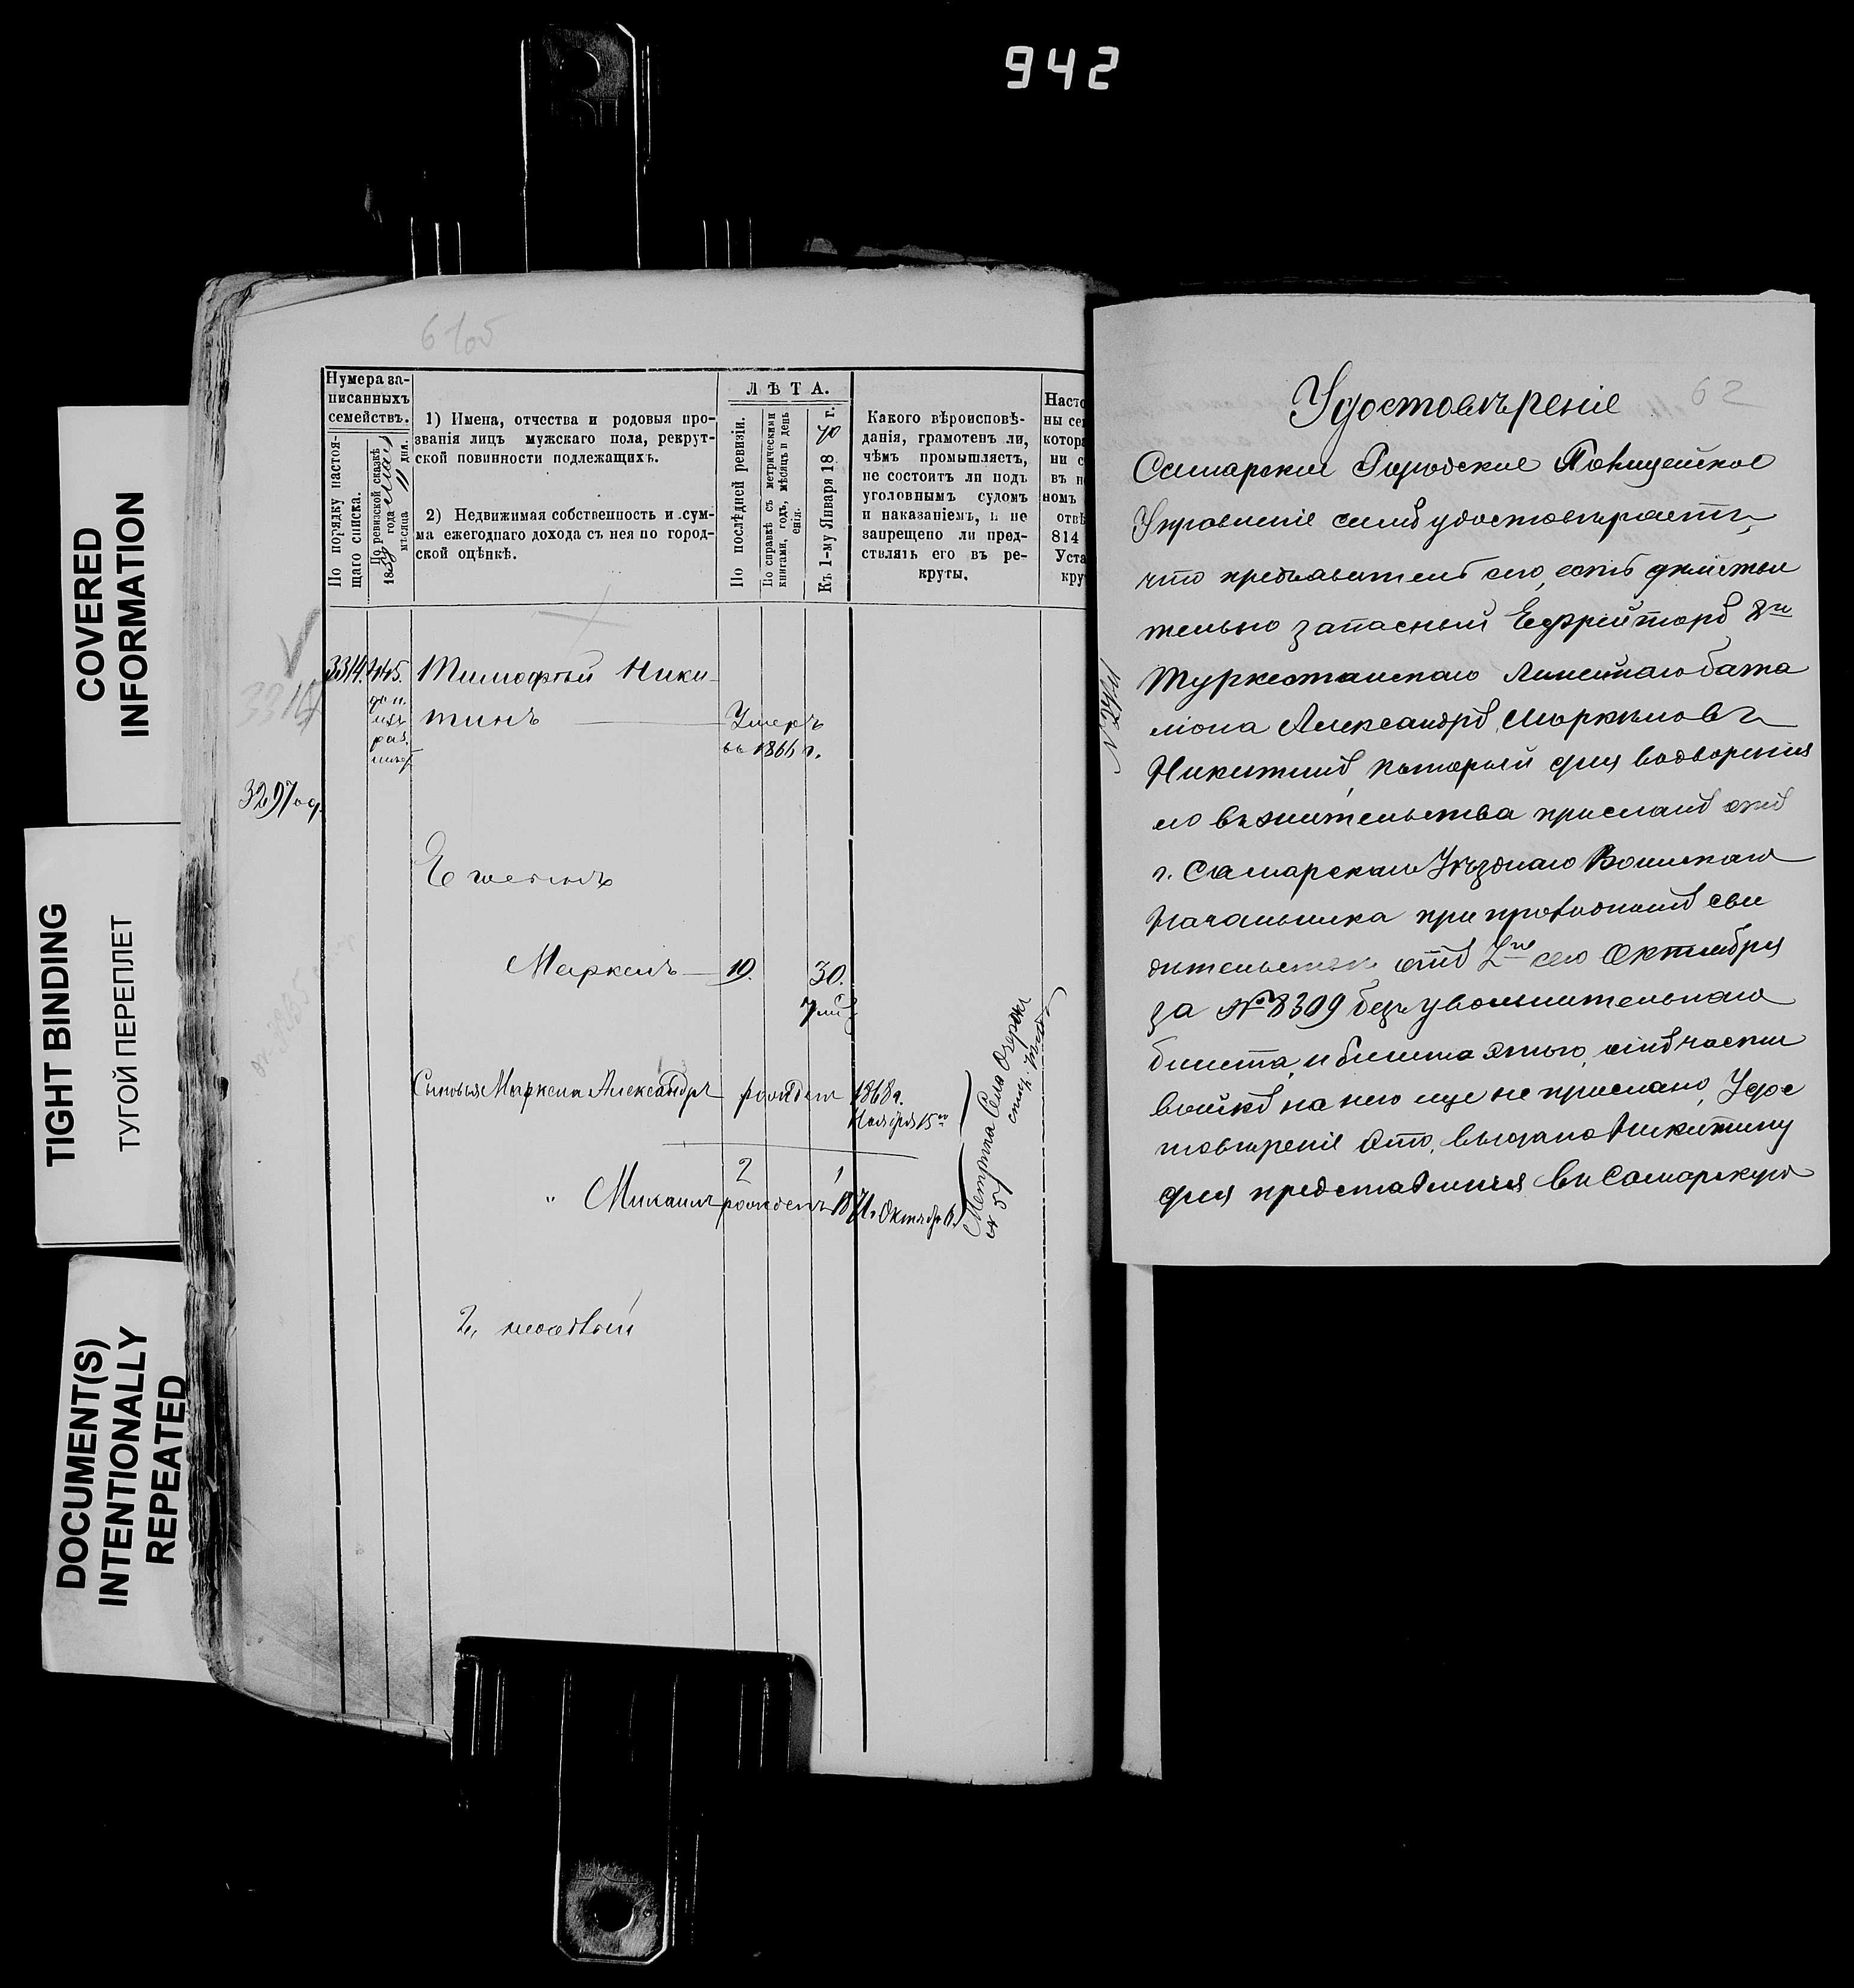 942
COVERED
INFORMATION
TIGHT BINDING
ТУГОЙ ПЕРЕПЛЕТ
DOCUMENT(S)
INTENTIONALLY
REPEATED
Нумера за-
писанныхъ
семействъ.
По порядку настоя-
щаго списка.
По ревизской сказкѣ
года Мая
мѣсяца 11 дня.
1) Имена, отчества и родовыя про-
званія лицъ мужскаго пола, рекрут-
ской повинности подлежащихъ.
2) Недвижимая собственность и сум-
ма ежегоднаго дохода съ нея по город-
ской оцѣнкѣ.
ЛѢТА.
По послѣдней ревизіи.
По справкѣ съ метрическими
книгами, годъ, мѣсяцъ и день
Къ 1-му Января 1870 г.
Какого вѣроисповѣ-
данія, грамотенъ ли,
чѣмъ промышляетъ,
не состоитъ ли подъ
уголовнымъ судомъ
и наказаніемъ, и не
запрещено ли пред-
ставлять его въ ре-
круты.
Насто
ны се
котор
ни с
въ н
номъ
отвѣ
814
Уста
кру
3314.
Тимофей Ники-
тинъ Умеръ
въ 1866 г.
3297
Маркелъ 19. 30.
Сыновья Маркела Александръ рожден 1868 г.
Ноября 15го
2 1
" Михаилъ рожденъ 1871 г. Октября
Метрика Села
№ 5
62
Удостовѣреніе
Самарское Городское Полицейское
Управленіе симъ удостовѣряетъ,
что предъявитель сего, есть дѣйстви
тельно запасный Ефрейторъ 8го
Туркестанскаго Линейнаго бата
ліона Александръ Маркеловъ
Никитинъ, который для водворенія
его въ жительства присланъ отъ
г. Самарскаго Уѣзднаго Воинскаго
Начальника при препроводит сви
дѣтельства отъ 2го сего Октября
за № 8309 безъ увольнительнаго
билета, и билета этого, отъ части
войскъ на него еще не прислано, Удос
товѣреніе это, выдано Никитину
для представленія въ Самарскую